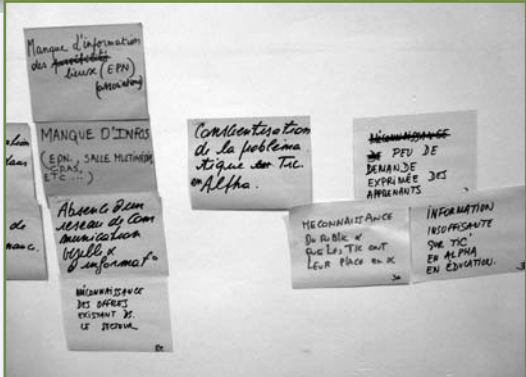 Manque d'information
des
lieux (EPN)
(associations)
MANQUE D'INFOS
(EPN, SALLE MULTIMEDIA,
ETC...)
Absence d'un
réseau de Com
munication
réelle &
d'informat°
MÉCONNAISSANCE
DES OFFRES
EXISTANT DS.
LE SECTEUR
de
Conscientisation
de la probléma
tique Tic
en Alpha.
MÉCONNAISSANCE
DE PEU DE
DEMANDE
EXPRIMÉE DES
APPRENANTS
MECONNAISSANCE
DU PUBLIC α
QUE LES TIC ONT
LEUR PLACE EN α
INFORMATION
INSUFFISANTE
SUR TIC
EN ALPHA
EN ÉDUCATION.